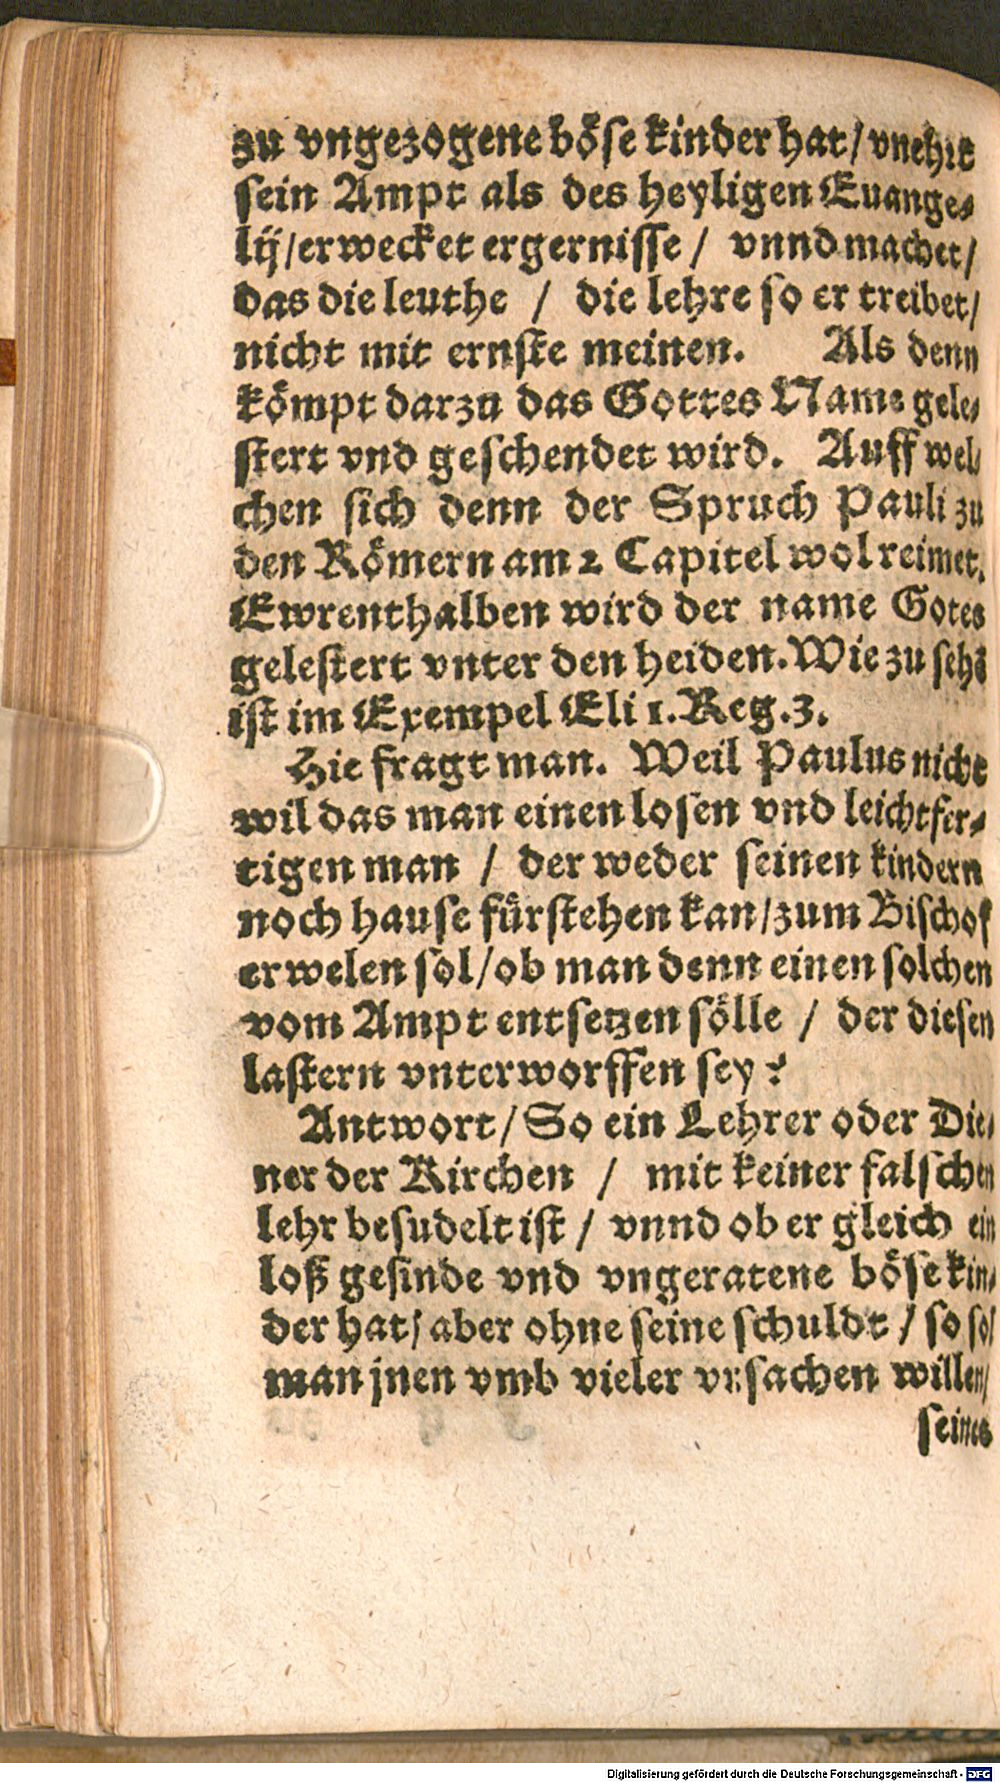 zu vngezogene böse kinder hat / vnehrt
sein Ampt als des heyligen Euange-
lij / erwecket ergernisse / vnnd machet /
das die leuthe / die lehre so er treibet /
nicht mit ernste meinen. Als denn
kömpt darzu das Gottes Name gele-
stert vnd geschendet wird. Auff wel-
chen sich denn der Spruch Pauli zu
den Römern am 2 Capitel wol reimet.
Ewrenthalben wird der name Gotes
gelestert vnter den heiden. Wie zu sehē
ist im Exempel Eli 1. Reg. 3.
Hie fragt man. Weil Paulus nicht
wil das man einen losen vnd leichtfer-
tigen man / der weder seinen kindern
noch hause fürstehen kan / zum Bischof
erwelen sol / ob man denn einen solchen
vom Ampt entsetzen sölle / der diesen
lastern vnterworffen sey?
Antwort / So ein Lehrer oder Die-
ner der Kirchen / mit keiner falschen
lehr besudelt ist / vnnd ob er gleich ein
loß gesinde vnd vngeratene böse kin-
der hat / aber ohne seine schuldt / so sol
man jnen vmb vieler vrsachen willen /
seines
Digitalisierung gefördert durch die Deutsche Forschungsgemeinschaft - DFG